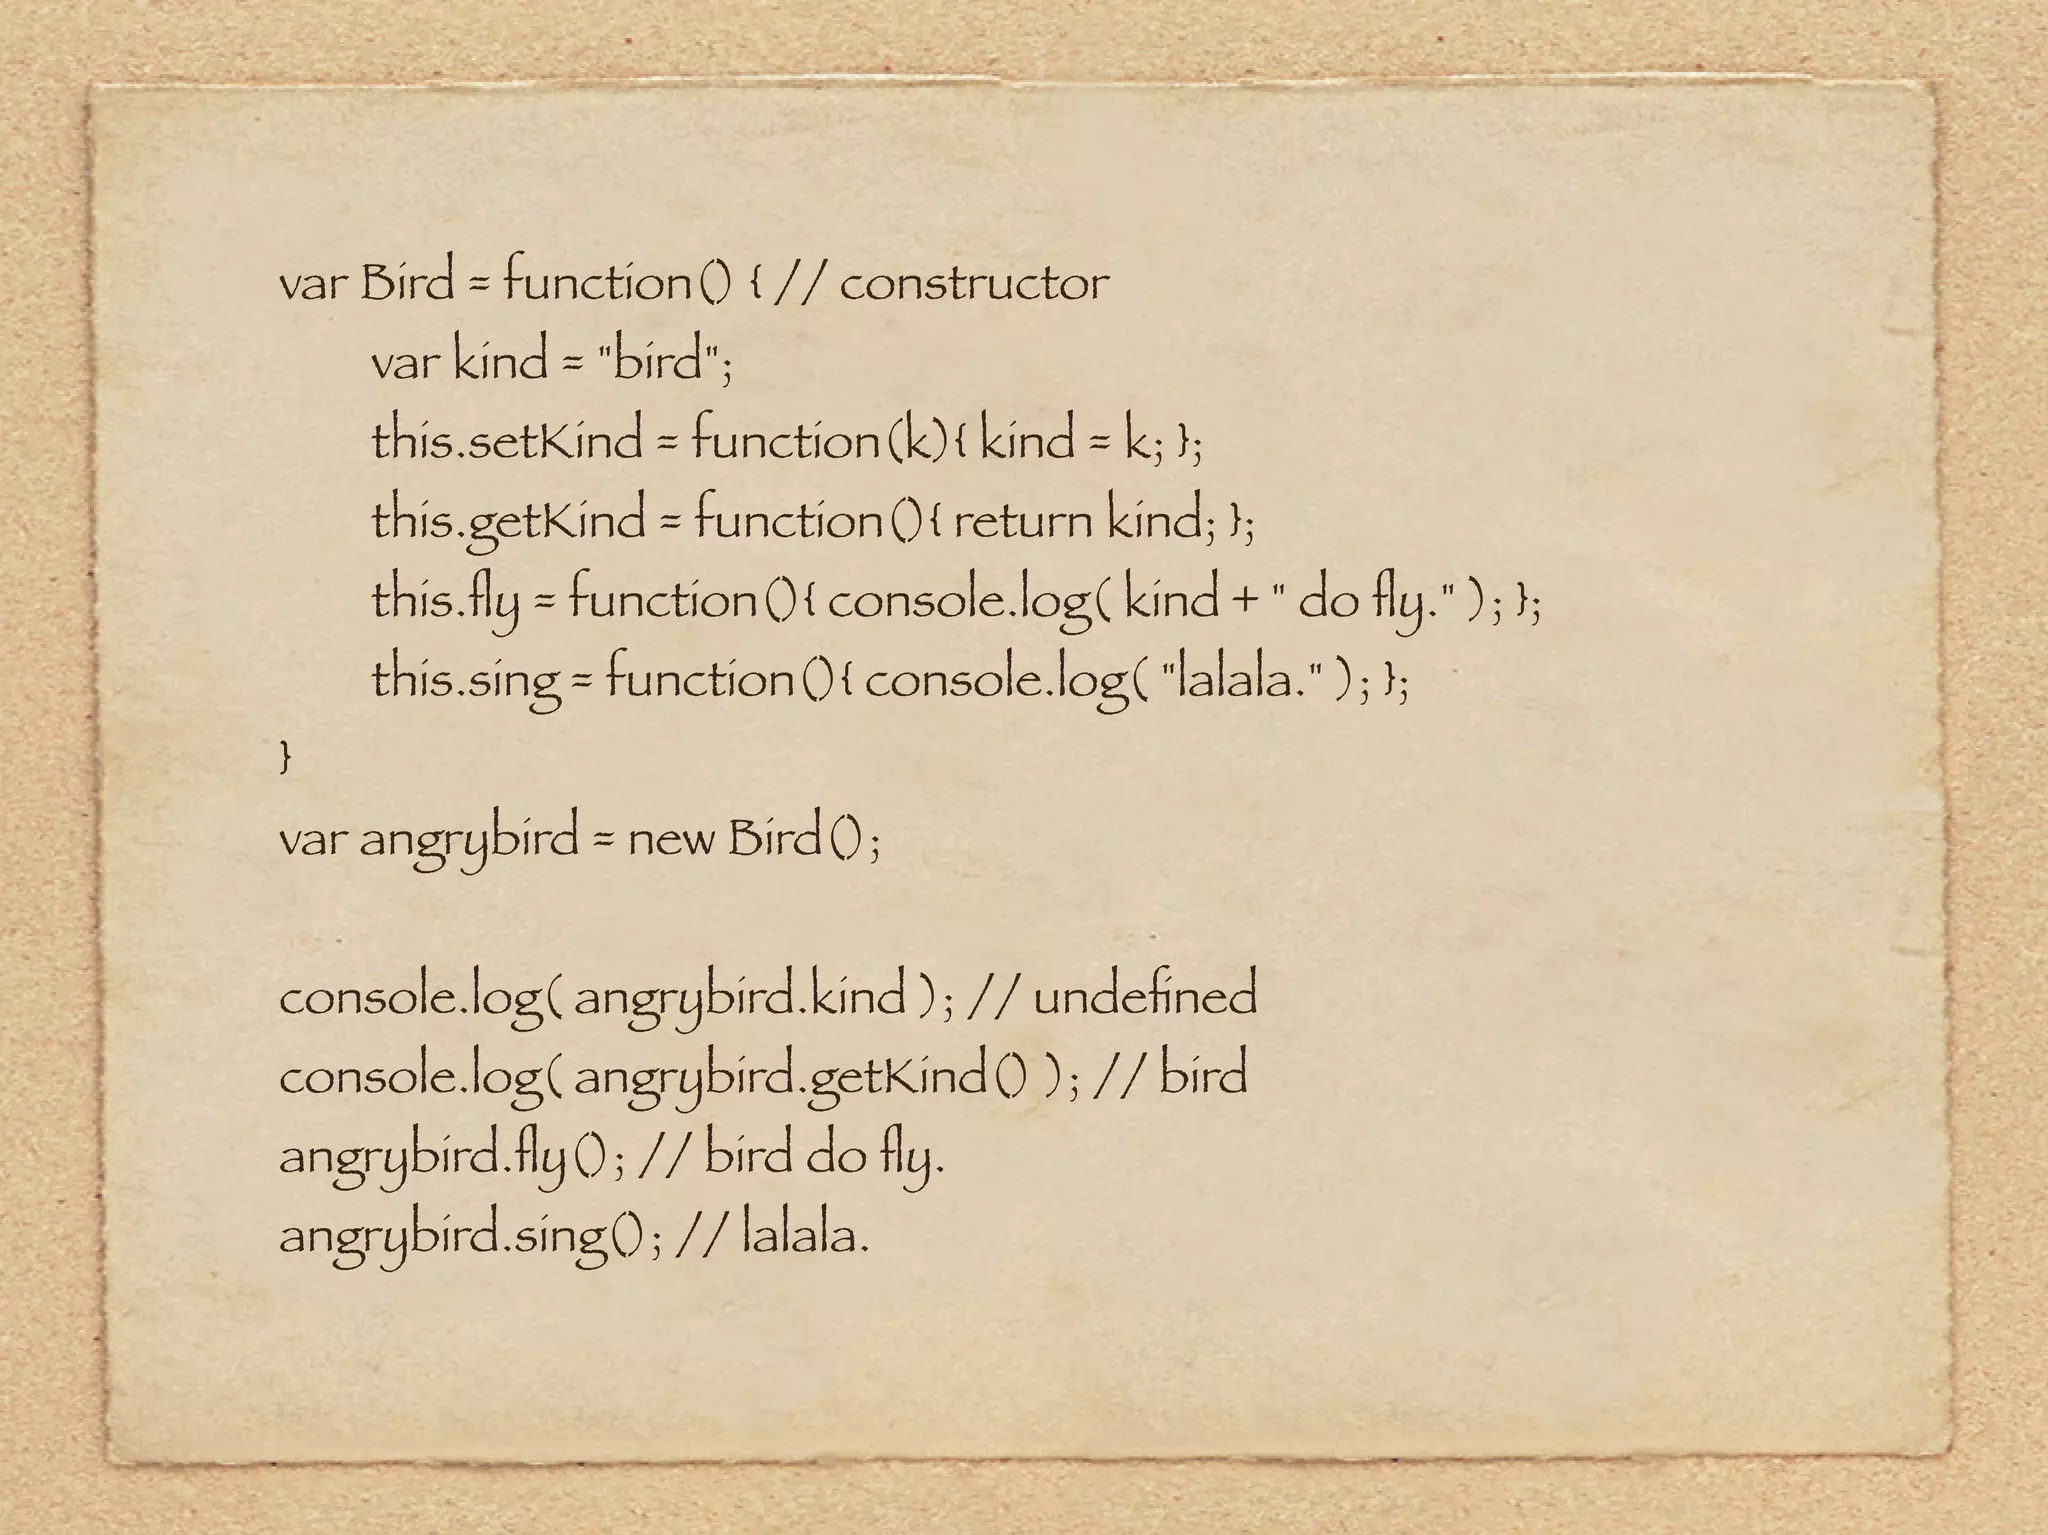 var Bird = function() { // constructor
var kind = "bird";
this.setKind = function(k){ kind = k; };
this.getKind = function(){ return kind; };
this.fly = function(){ console.log( kind + " do fly." ); };
this.sing = function(){ console.log( "lalala." ); };
}
var angrybird = new Bird();
console.log( angrybird.kind ); // undefined
console.log( angrybird.getKind() ); // bird
angrybird.fly(); // bird do fly.
angrybird.sing(); // lalala.